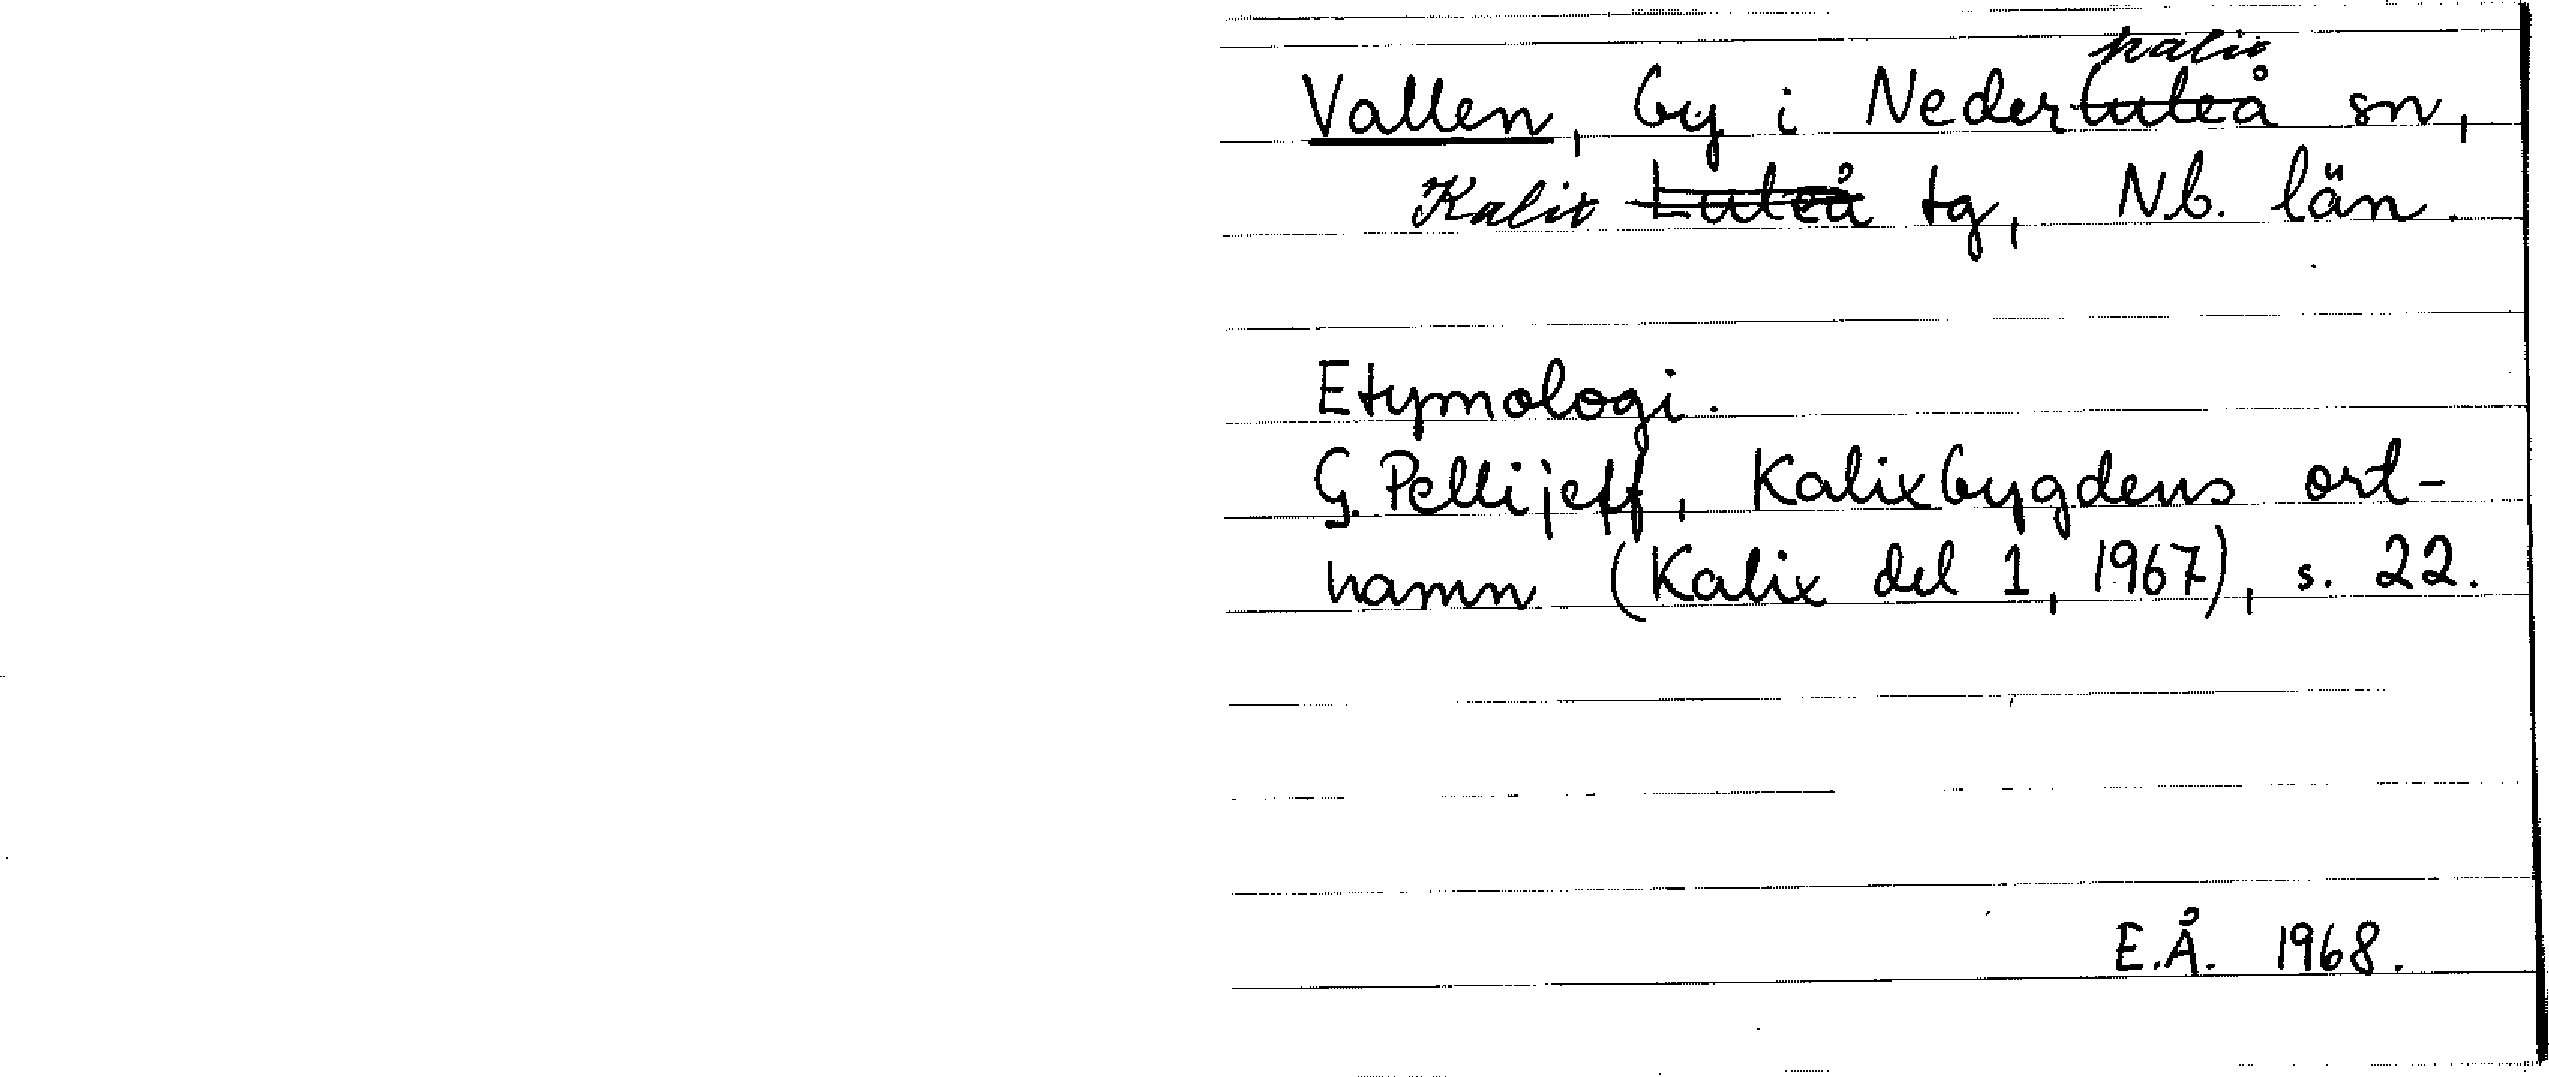 Vallen, by i Nederluleå kalix sn,
Kalix Luleå tg, Nb. län.
Etymologi.
G. Pellijeff, Kalixbygdens ort-
namn (Kalix del 1, 1967), s. 22.
E.Å. 1968.